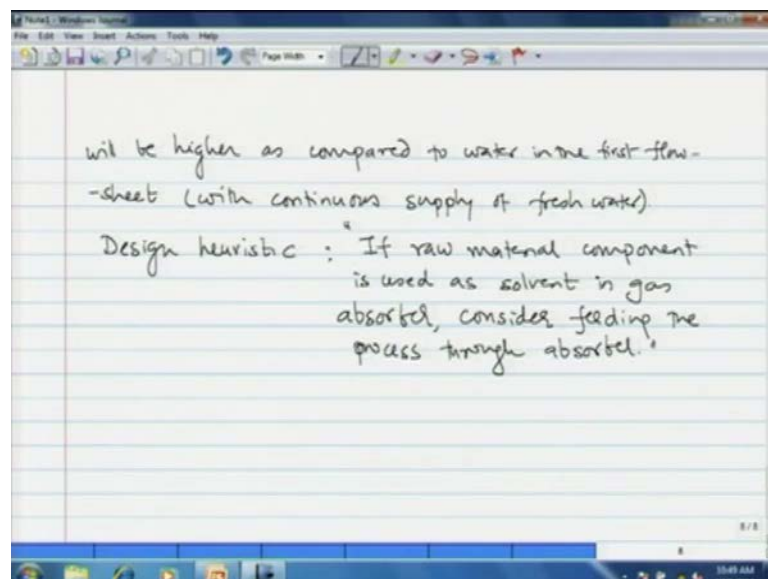 Note1 - Windows Journal
File Edit View Insert Actions Tools Help
Page Width
will be higher as compared to water in the first flow-
-sheet (with continuous supply of fresh water)
Design heuristic : "If raw material component
is used as solvent in gas
absorber, consider feeding the
process through absorber."
8/8
8
10:49 AM